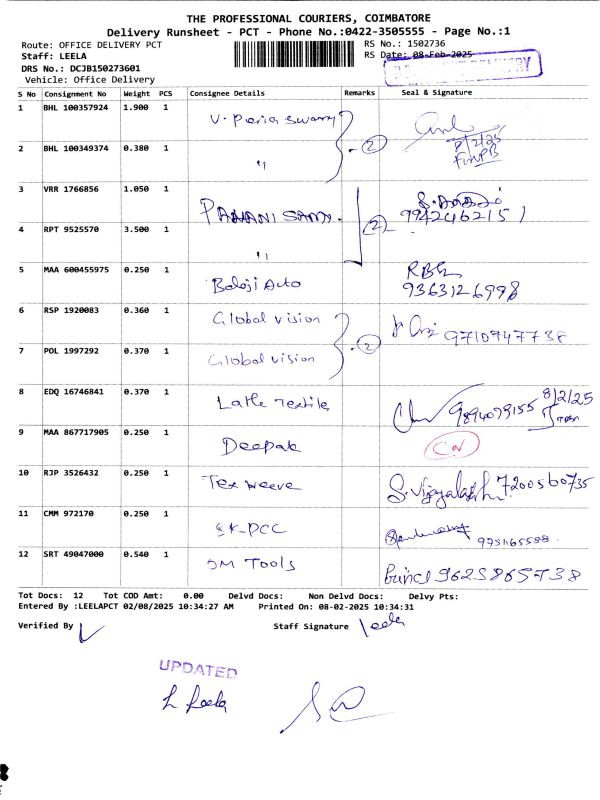 THE PROFESSIONAL COURIERS, COIMBATORE
Delivery Runsheet - PCT - Phone No.:0422-3505555 - Page No.:1
Route: OFFICE DELIVERY PCT RS No.: 1502736
Staff: LEELA RS Date: 08-Feb-2025
DRS No.: DCJB150273601
Vehicle: Office Delivery
S No Consignment No Weight PCS Consignee Details Remarks Seal & Signature
1 BHL 100357924 1.900 1 V. Periaswamy
2 BHL 100349374 0.380 1 " 2 8/2/25
3 VRR 1766856 1.050 1 PAHANISAMY. 9942462151
4 RPT 9525570 3.500 1 " 2
5 MAA 600455975 0.250 1 Baloji Auto 9363126998
6 RSP 1920083 0.360 1 Global vision 9710947738
7 POL 1997292 0.370 1 Global vision 2
8 EDQ 16746841 0.370 1 Lathe Textile 9894079155 8/2/25
9 MAA 867717905 0.250 1 Deepak
10 RJP 3526432 0.250 1 Tex weeve S. Vijyalakshmi 7200560735
11 CMM 972170 0.250 1 SK-PCC
12 SRT 49047000 0.540 1 JM Tools 9625865738
Tot Docs: 12 Tot COD Amt: 0.00 Delvd Docs: Non Delvd Docs: Delvy Pts:
Entered By :LEELAPCT 02/08/2025 10:34:27 AM Printed On: 08-02-2025 10:34:31
Verified By Staff Signature leela
UPDATED
L Leela